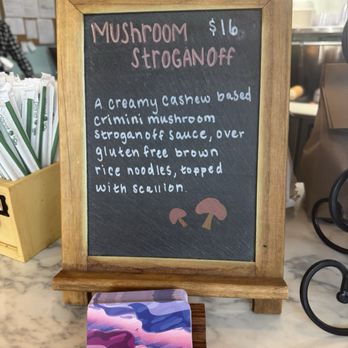 Mushroom $16
Stroganoff
A creamy cashew based
crimini mushroom
stroganoff sauce, over
gluten free brown
rice noodles, topped
with scallion.